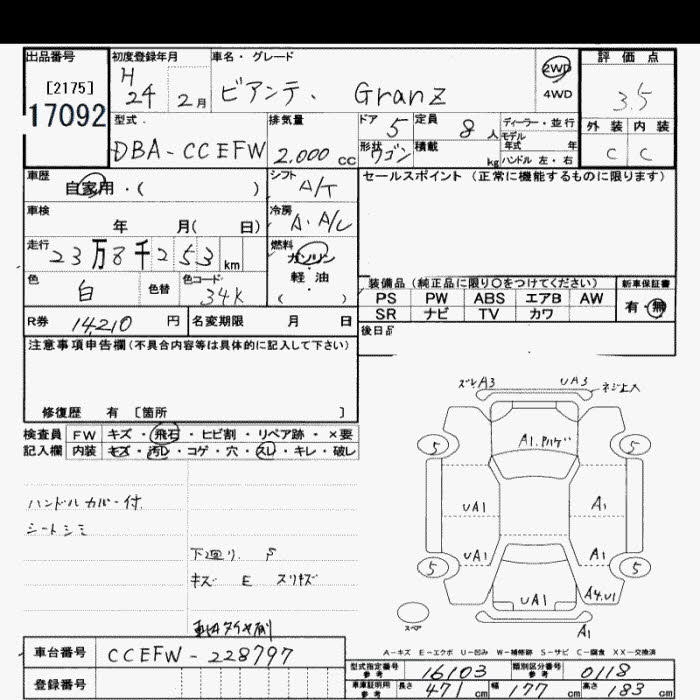 出品番号 初度登録年月 車名・グレード 評価点
[2175] H 24 2月 ビアンテ、 Granz 2WD 4WD 3.5
17092 型式 DBA-CCEFW 排気量 2.000 cc ドア 5 定員 8人 ディーラー・並行 外装 内装
形状 ワゴン 積載 kg モデル年式 年 ハンドル 左・右 C C
車歴 自家用・( ) シフト A/T セールスポイント(正常に機能するものに限ります)
車検 年 月( 日) 冷房 A.A/C
走行 23万8千253km 燃料 ガソリン
色 白 色替 色コード 34K 軽油 ( )
装備品(純正品に限り〇をつけてください) 新車保証書
PS PW ABS エアB AW 有・無
SR ナビ TV カワ
R券 14,210 円 名変期限 月 日 後日品
注意事項申告欄(不具合内容等は具体的に記入して下さい)
修復歴 有 〔箇所 〕
検査員 FW キズ・飛石・ヒビ割・リペア跡・×要
記入欄 内装 キズ・汚レ・コゲ・穴・スレ・キレ・破レ
ズレA3 UA3 ネジ止メ
A1.Pハゲ
5 5
UA1 A1
UA1 A1
5 5
UA1 A4.U1
スペア A1
ハンドルカバー付
シートシミ
下回り S
キズ E スリキズ
A-キズ E-エクボ U-凹み W-補修跡 S-サビ C-腐食 XX-交換済
車台番号 CCEFW-228797
登録番号
型式指定番号 参考 16103 類別区分番号 参考 0118
車庫証明用 参考 長さ 471 cm 幅 177 cm 高さ 183 cm